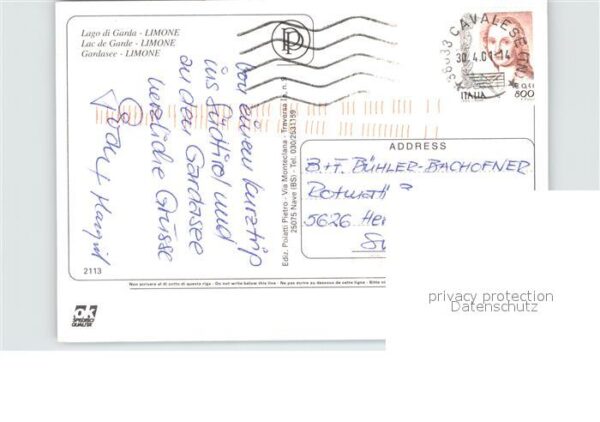 Lago di Garda - LIMONE
Lac de Garde - LIMONE
Gardasee - LIMONE
Von einem Kurztrip
ins Südtirol und
an den Gardasee
herzliche Grüsse
2113
Ediz. Polatti Pietro - Via Monteclana - Traversa n. 9
25075 Nave (BS) - Tel. 030/2531159
38033 CAVALESE (TN)
30.4.01-14
ITALIA
800
ADDRESS
B.+T. BÜHLER-BACHOFNER
5626
Non scrivere al di sotto di questa riga - Do not write below this line - Ne pas écrire au dessous de cette ligne - Bitte
ok
SPEDISCI
QUALITÀ
privacy protection
Datenschutz